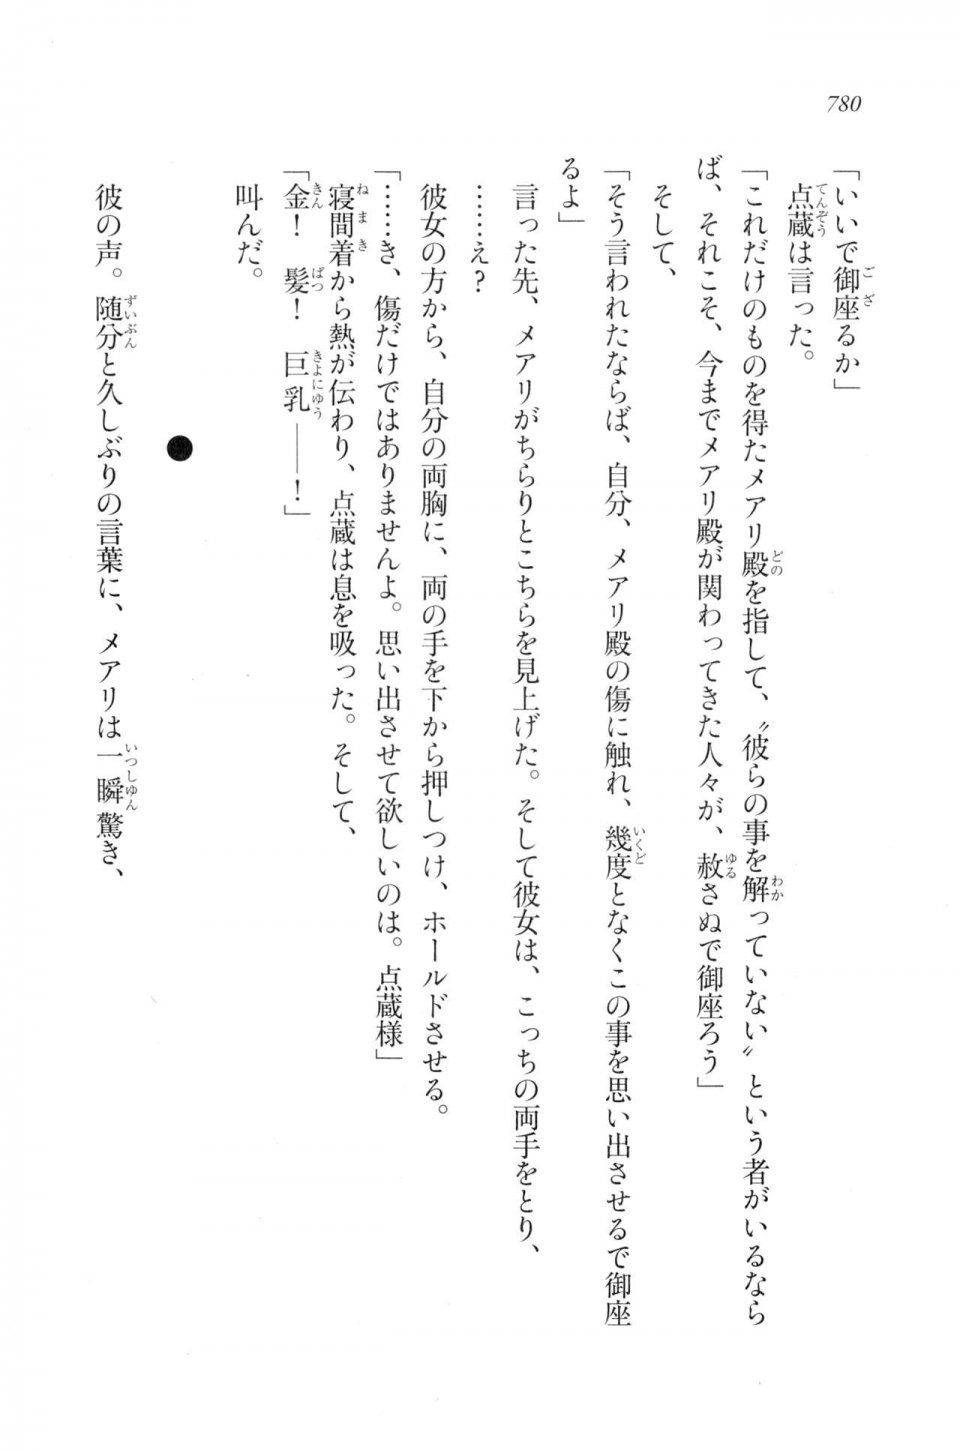 780
「いいで御座るか」
点蔵は言った。
「これだけのものを得たメアリ殿を指して、〝彼らの事を解っていない〟という者がいるなら
ば、それこそ、今までメアリ殿が関わってきた人々が、赦さぬで御座ろう」
そして、
「そう言われたならば、自分、メアリ殿の傷に触れ、幾度となくこの事を思い出させるで御座
るよ」
言った先、メアリがちらりとこちらを見上げた。そして彼女は、こっちの両手をとり、
……え?
彼女の方から、自分の両胸に、両の手を下から押しつけ、ホールドさせる。
「……き、傷だけではありませんよ。思い出させて欲しいのは。点蔵様」
寝間着から熱が伝わり、点蔵は息を吸った。そして、
「金! 髪! 巨乳――!」
叫んだ。
●
彼の声。随分と久しぶりの言葉に、メアリは一瞬驚き、